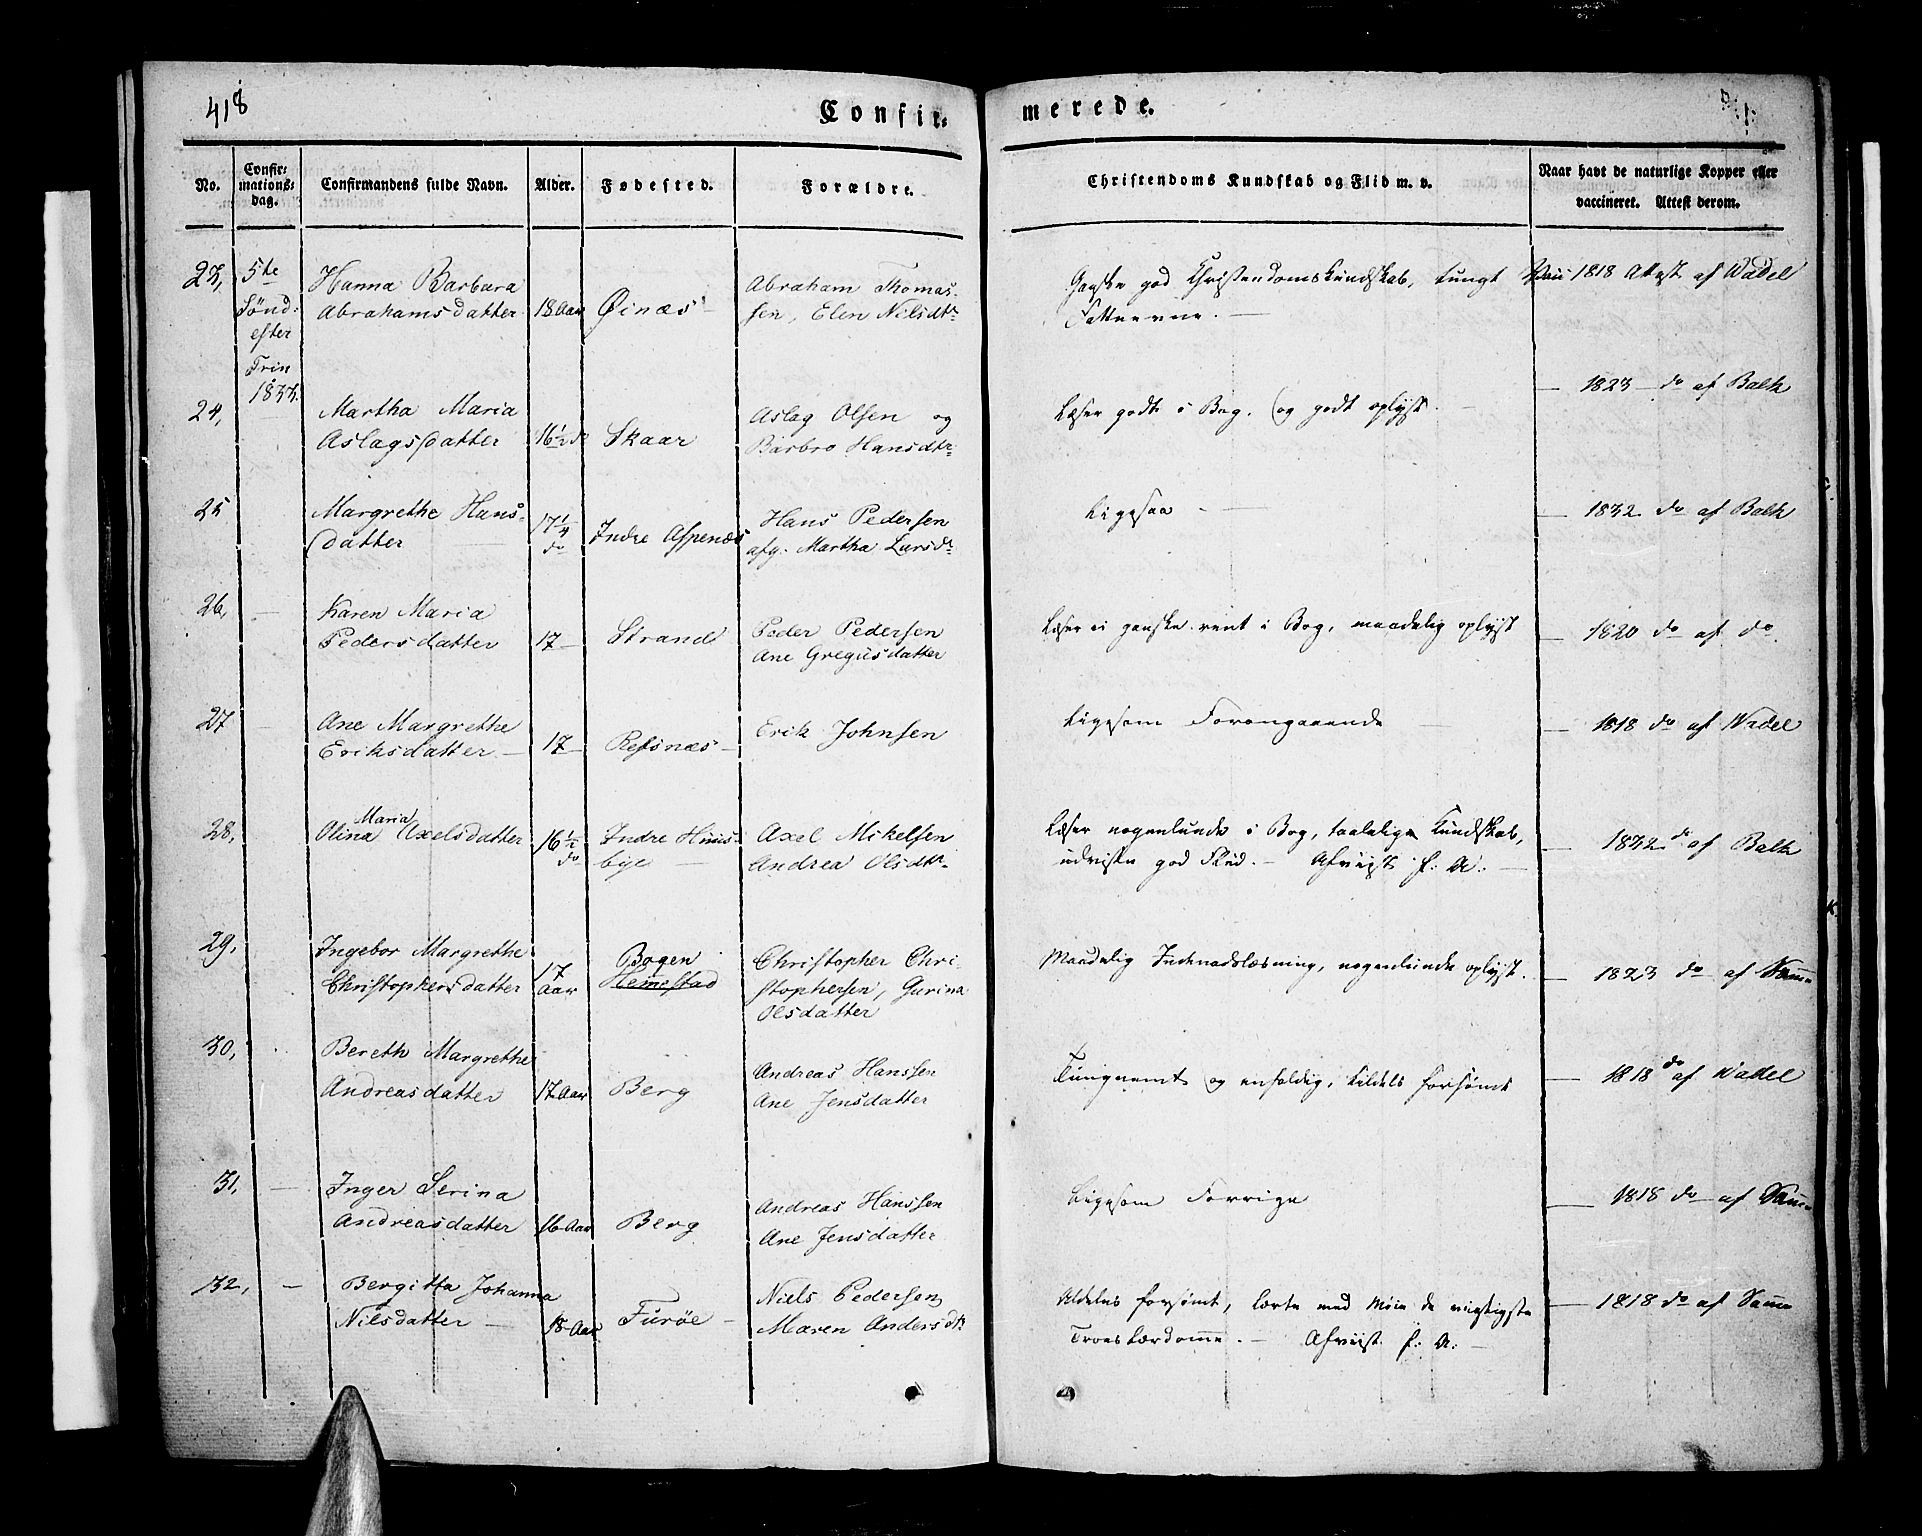 418
Confir=
merede.
No.
Confir=
mations=
dag.
Confirmandens fulde Navn.
Alder.
Fødested.
Forældre.
Christendoms Kundskab og Flid m. v.
Naar havt de naturlige Kopper eller
vaccineret. Attest derom.
23,
5te
Sønd:
efter
Trin
1833.
Hanna Barbara
Abrahamsdatter
18 Aar
Øinæs
Abraham Thomas-
sen, Elen Nilsdtr
Ganske god Christendomskundskab, tungt
Fatteevne.
1818 Attest af Wadel
24,
Martha Maria
Aslagsdatter
16½ do
Skaar
Aslag Olsen og
Barbro Hansdtr
Læser godt i Bog, og godt oplyst.
— 1823 — do af Balk
25
Margrethe Hans-
datter
17¼
do
Indre Aspenæs
Hans Pedersen
afg. Martha Larsdr
Ligesaa —
— 1832 do af Balk
26, —
Karen Maria
Pedersdatter
17 —
Strand
Peder Pedersen
Ane Gregusdatter
Læser ei ganske rent i Bog, maadelig oplyst
— 1820 do af do
27 —
Ane Margrethe
Eriksdatter —
17 —
Refsnæs —
Erik Johnsen
Ligesom Foregaaende
— 1818 do af Wadel
28,
Maria
Olina Axelsdatter
16½
do
Indre Huus-
bye —
Axel Mikelsen
Andrea Olsdtr
Læser nogenlunde i Bog, taalelig Kundskab,
udviste god Flid. — Afviist f: A: —
— 1832 do af Balk
29,
Ingebor Margrethe
Christophersdatter
17
Aar
Bogen
Hemestad
Christopher Chri-
stophersen, Gurina
Olsdatter
Maadelig Indenadslæsning, nogenlunde oplyst.
— 1823 do af Samme
30,
Bereth Margrethe
Andreasdatter
17 Aar
Berg
Andreas Hanssen
Ane Jensdatter
Tungnemt og enfoldig, tildels forsømt
— 1818 do af Wadel
31, —
Inger Serina
Andreasdatter
16 Aar
Berg
Andreas Hanssen
Ane Jensdatter
Ligesom Forrige
— 1818 do af Samme
32, —
Bergitta Johanna
Nilsdatter —
18 Aar
Furøe —
Niels Pedersen
Maren Andersdtr
Aldeles forsømt, lærte med Møie de vigtigste
Troeslærdomme. — Afviist. f: A: —
— 1818 do af Samme